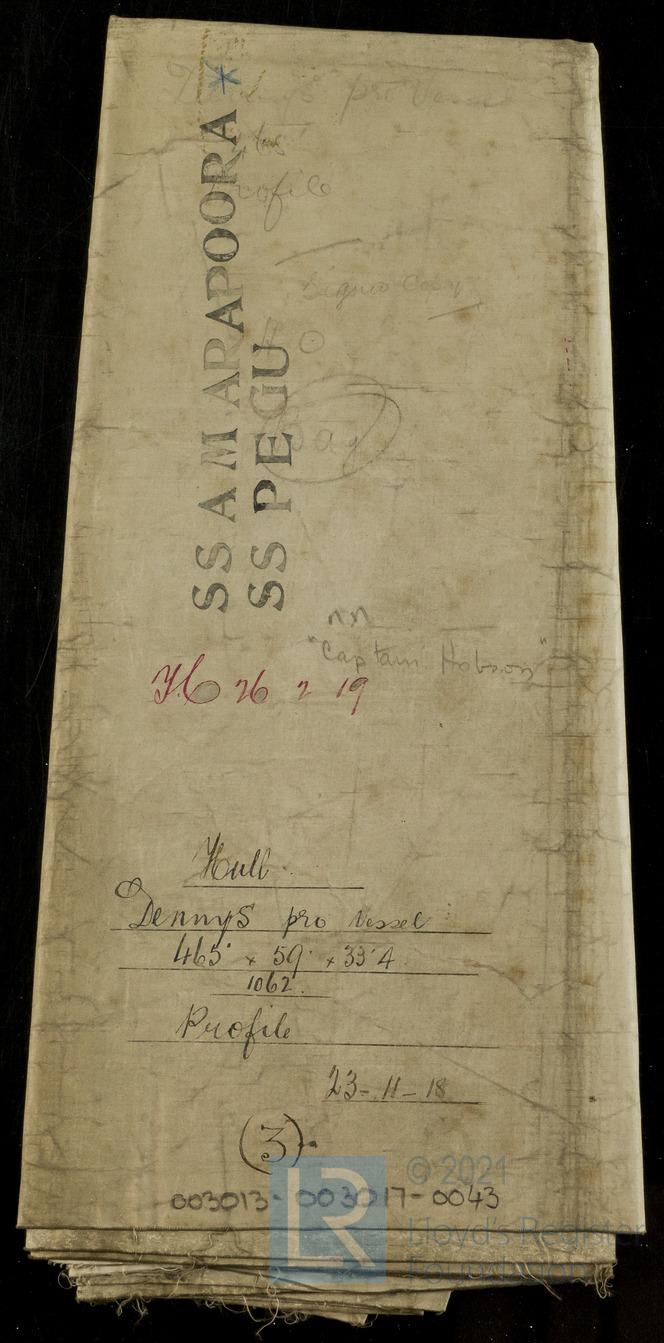 Dennys pro Vessel
Profile
Signed Copy
SS AMARAPOORA *
SS PEGU
"Captain Hobson"
26 2 19
Hull
Dennys pro Vessel
465' × 59' × 33'4
1062.
Profile
23-11-18
(3)
003013-003017-0043
LR
© 2021
Lloyd's Register
Foundation